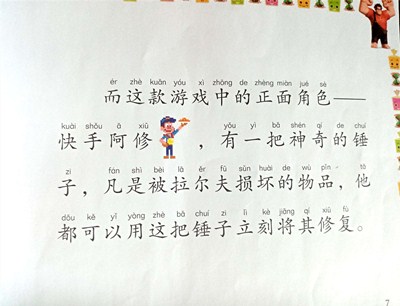 ér zhè kuǎn yóu xì zhōng de zhèng miàn jué sè
而这款游戏中的正面角色——
kuài shǒu ā xiū yǒu yì bǎ shén qí de chuí
快手阿修，有一把神奇的锤
zi fán shì bèi lā ěr fū sǔn huài de wù pǐn tā
子，凡是被拉尔夫损坏的物品，他
dōu kě yǐ yòng zhè bǎ chuí zi lì kè jiāng qí xiū fù
都可以用这把锤子立刻将其修复。
7